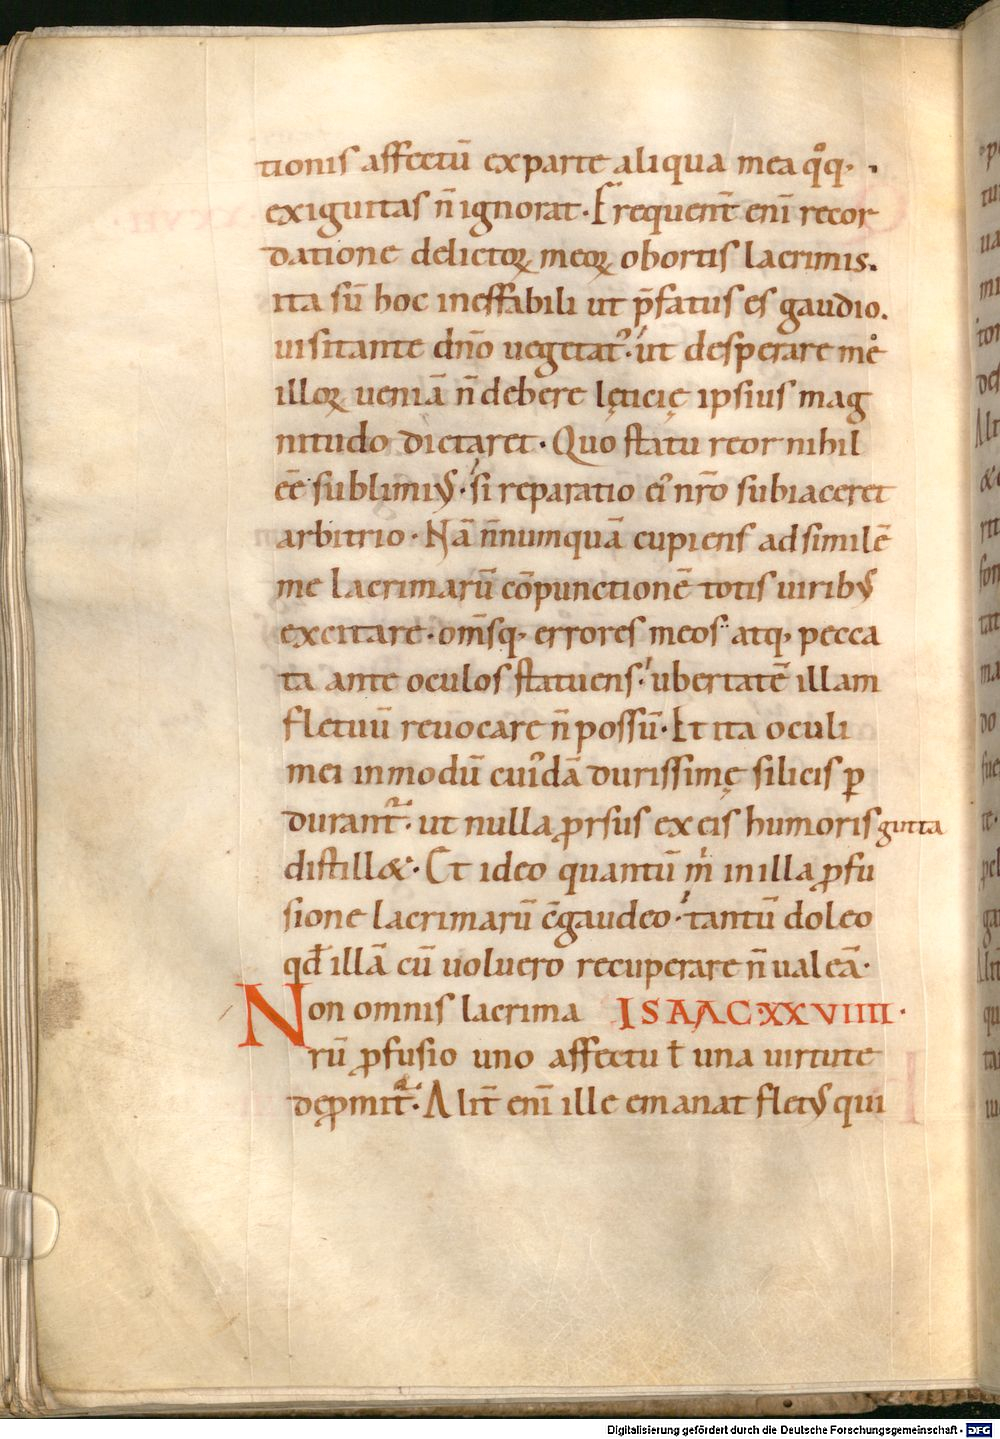 tionis affectū ex parte aliqua mea qͦq·
exiguitas n̄ ignorat · Frequent̄ eni̅ recor
datione delictoꝝ meoꝝ obortis lacrimis.
ita sū hoc ineffabili ut p̄fatus es gaudio.
uisitante dn̄o uegetatꝰ · ut desperare me͛
illoꝝ ueniā n̄ debere lęticię ipsius mag
nitudo dictaret · Quo statu reor nihil
ēē sublimiꝰ · si reparatio eiꝰ nr̄o subiaceret
arbitrio · Nā n̄numquā cupiens ad similē
me lacrimarū cōpunctionē totis uiribꝰ
excitare · om̄sq· errores meos atq· pecca
ta ante oculos statuens · ubertatē illam
fletuū reuocare n̄ possū · Et ita oculi
mei inmodū cuiꝰdā durissimę silicis ꝑ
durant᷑ · ut nulla ꝓrsus ex eis humoris gutta
distill& · Et ideo quantū m̄ in illa ꝓfu
sione lacrimarū c̄gaudeo · tantū doleo
qđ illā cū uoluero recuperare n̄ ualeā ·
Non omnis lacrima ISAAC · XXVIIII ·
rū ꝓfusio uno affectu ł una uirtute
dęꝓmit᷑ · Alit̄ eni̅ ille emanat fletꝰ qui
Digitalisierung gefördert durch die Deutsche Forschungsgemeinschaft - DFG